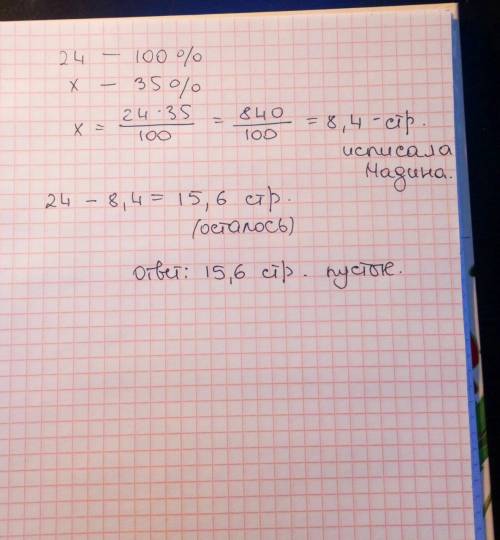 24 – 100%
x – 35%
x = 24·35/100 = 840/100 = 8,4 - стр.
исписала
Мадина.
24 – 8,4 = 15,6 стр.
(осталось)
Ответ: 15,6 стр. пустые.